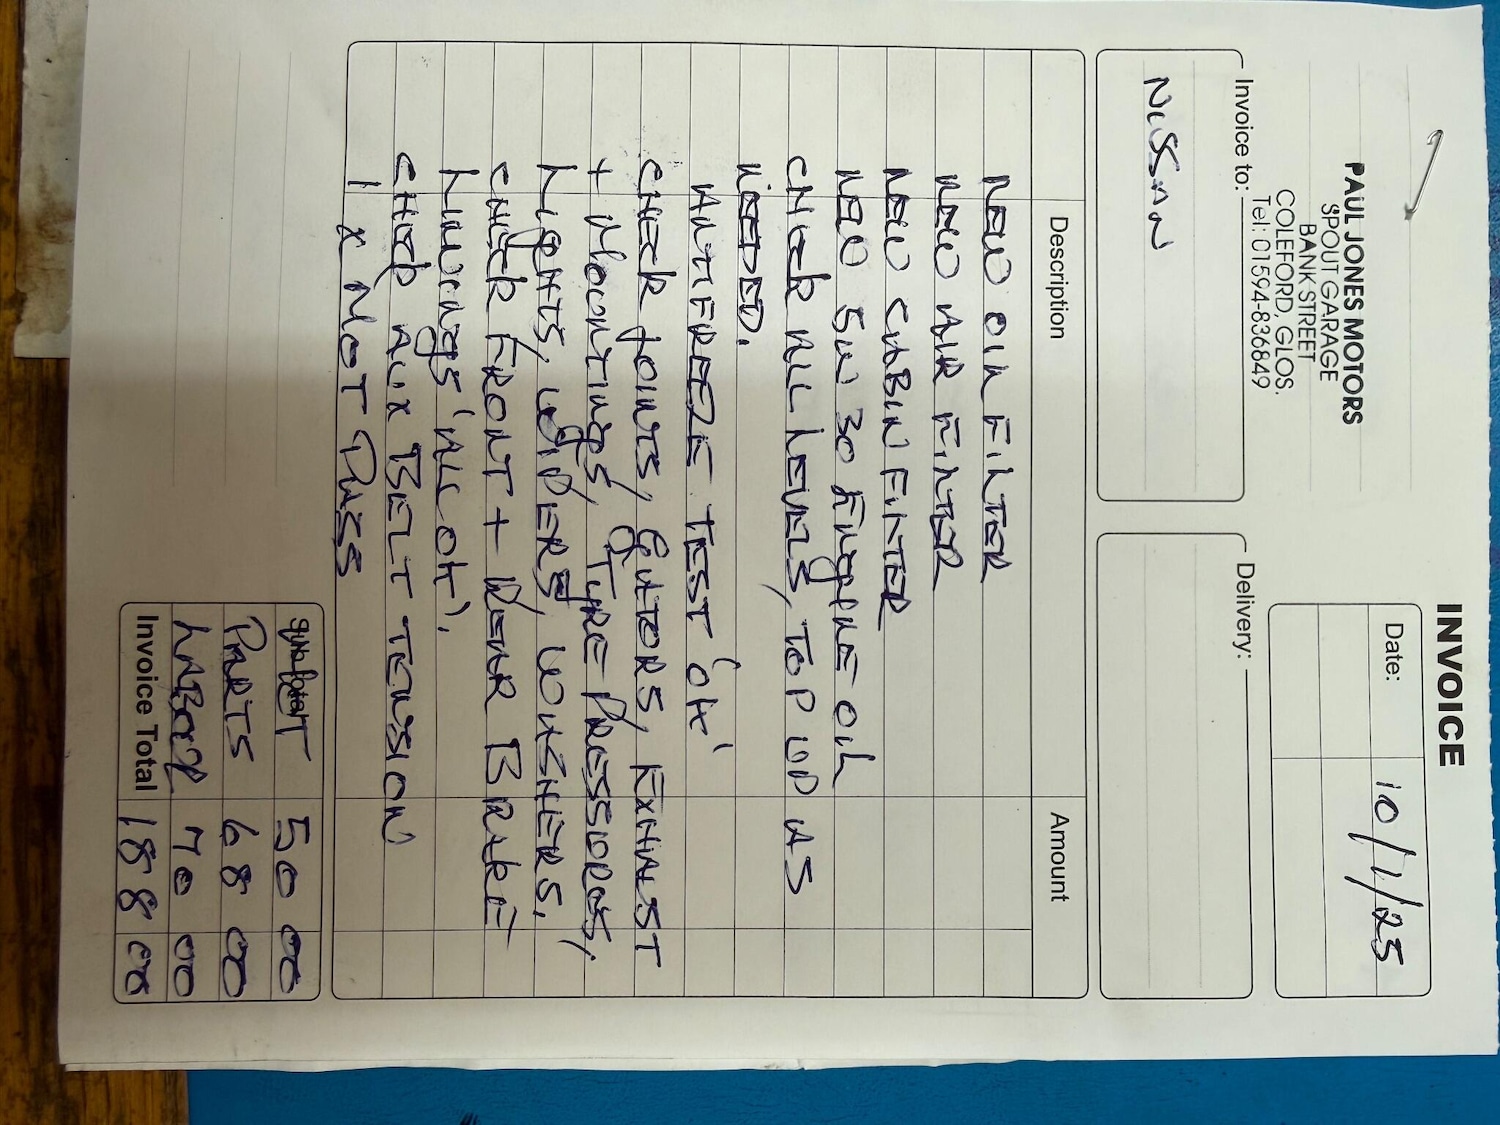 INVOICE
PAUL JONES MOTORS
SPOUT GARAGE
BANK STREET
COLEFORD, GLOS.
Tel: 01594-836849
Date: 10/1/25
Invoice to:
Delivery:
NISSAN
Description Amount
NEW OIL FILTER
NEW AIR FILTER
NEW CABIN FILTER
NEW 5W 30 ENGINE OIL
CHECK ALL LEVELS, TOP UP AS
NEEDED.
ANTIFREEZE TEST 'OK'
CHECK JOINTS, GAITORS, EXHAUST
+ MOUNTINGS, TYRE PRESSURES,
LIGHTS, WIPERS, WASHERS,
CHECK FRONT + REAR BRAKE
LININGS 'ALL OK'.
CHECK AUX BELT TENSION
1 X MOT PASS
50 00
PARTS 68 00
LABOUR 70 00
Invoice Total 188 00